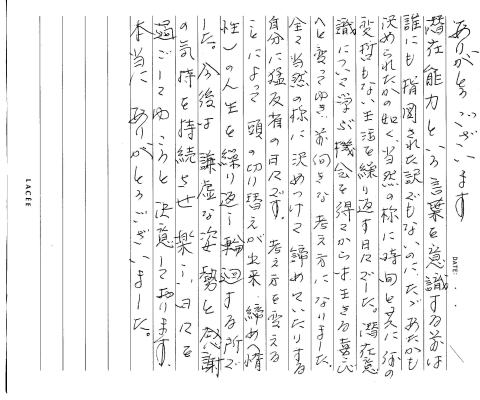 ありがとうございます
DATE: ・ ・
潜在能力という言葉を意識する前は
誰にも指図された訳でもないのに、たゞあたかも
決められたかの如く当然の様に時間と共に何の
変哲もない生活を繰り返す日々でした。潜在意
識について学ぶ機会を得てからは生きる喜び
へと変ってゆき前向きな考え方になりました。
全て当然の様に決めつけて諦めていたりする
自分に猛反省の日々です。考え方を変える
ことによって頭の切り替えが出来 諦め(惰
性)の人生を繰り返し輪廻する所で
した。今後は謙虚な姿勢と感謝
の気持を持続させ楽しい日々を
過ごしてゆこうと決意しております。
本当に ありがとうございました。
LACEE